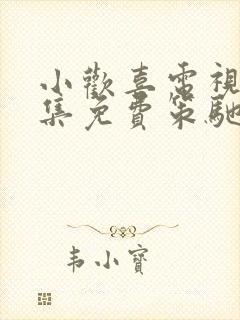 小歡喜電視
集免費策馳
韦小寶